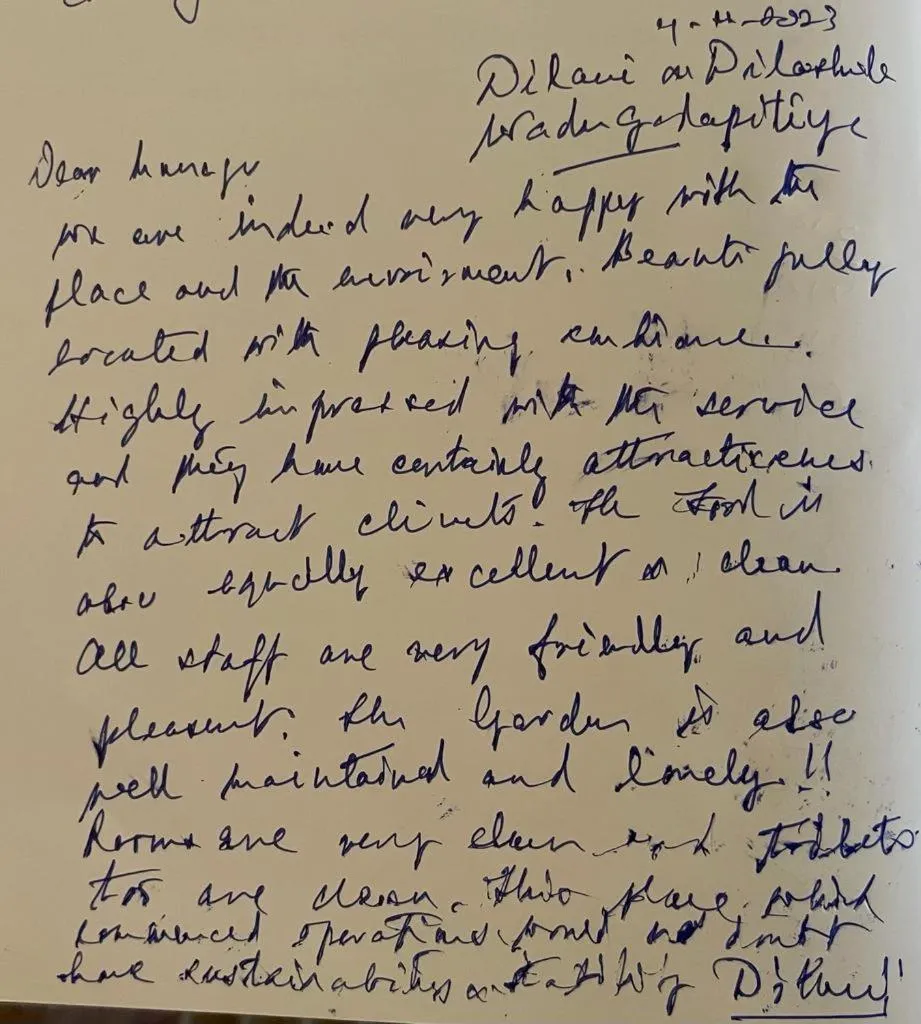 -2023
Dilani
Dear Manager
we are indeed very happy with the
place and the enviroment. Beautifully
located with pleasing ambiance.
Highly impressed with the service
and they have certainly attractiveness
to attract clients. The Food is
also equally excellent & clean
All staff are very friendly and
pleasent. The Garden is also
well maintained and lovely!!
Rooms are very clean and toilets
too are clean. This place which
commenced operations would no doubt
have sustainability & stability Dilani